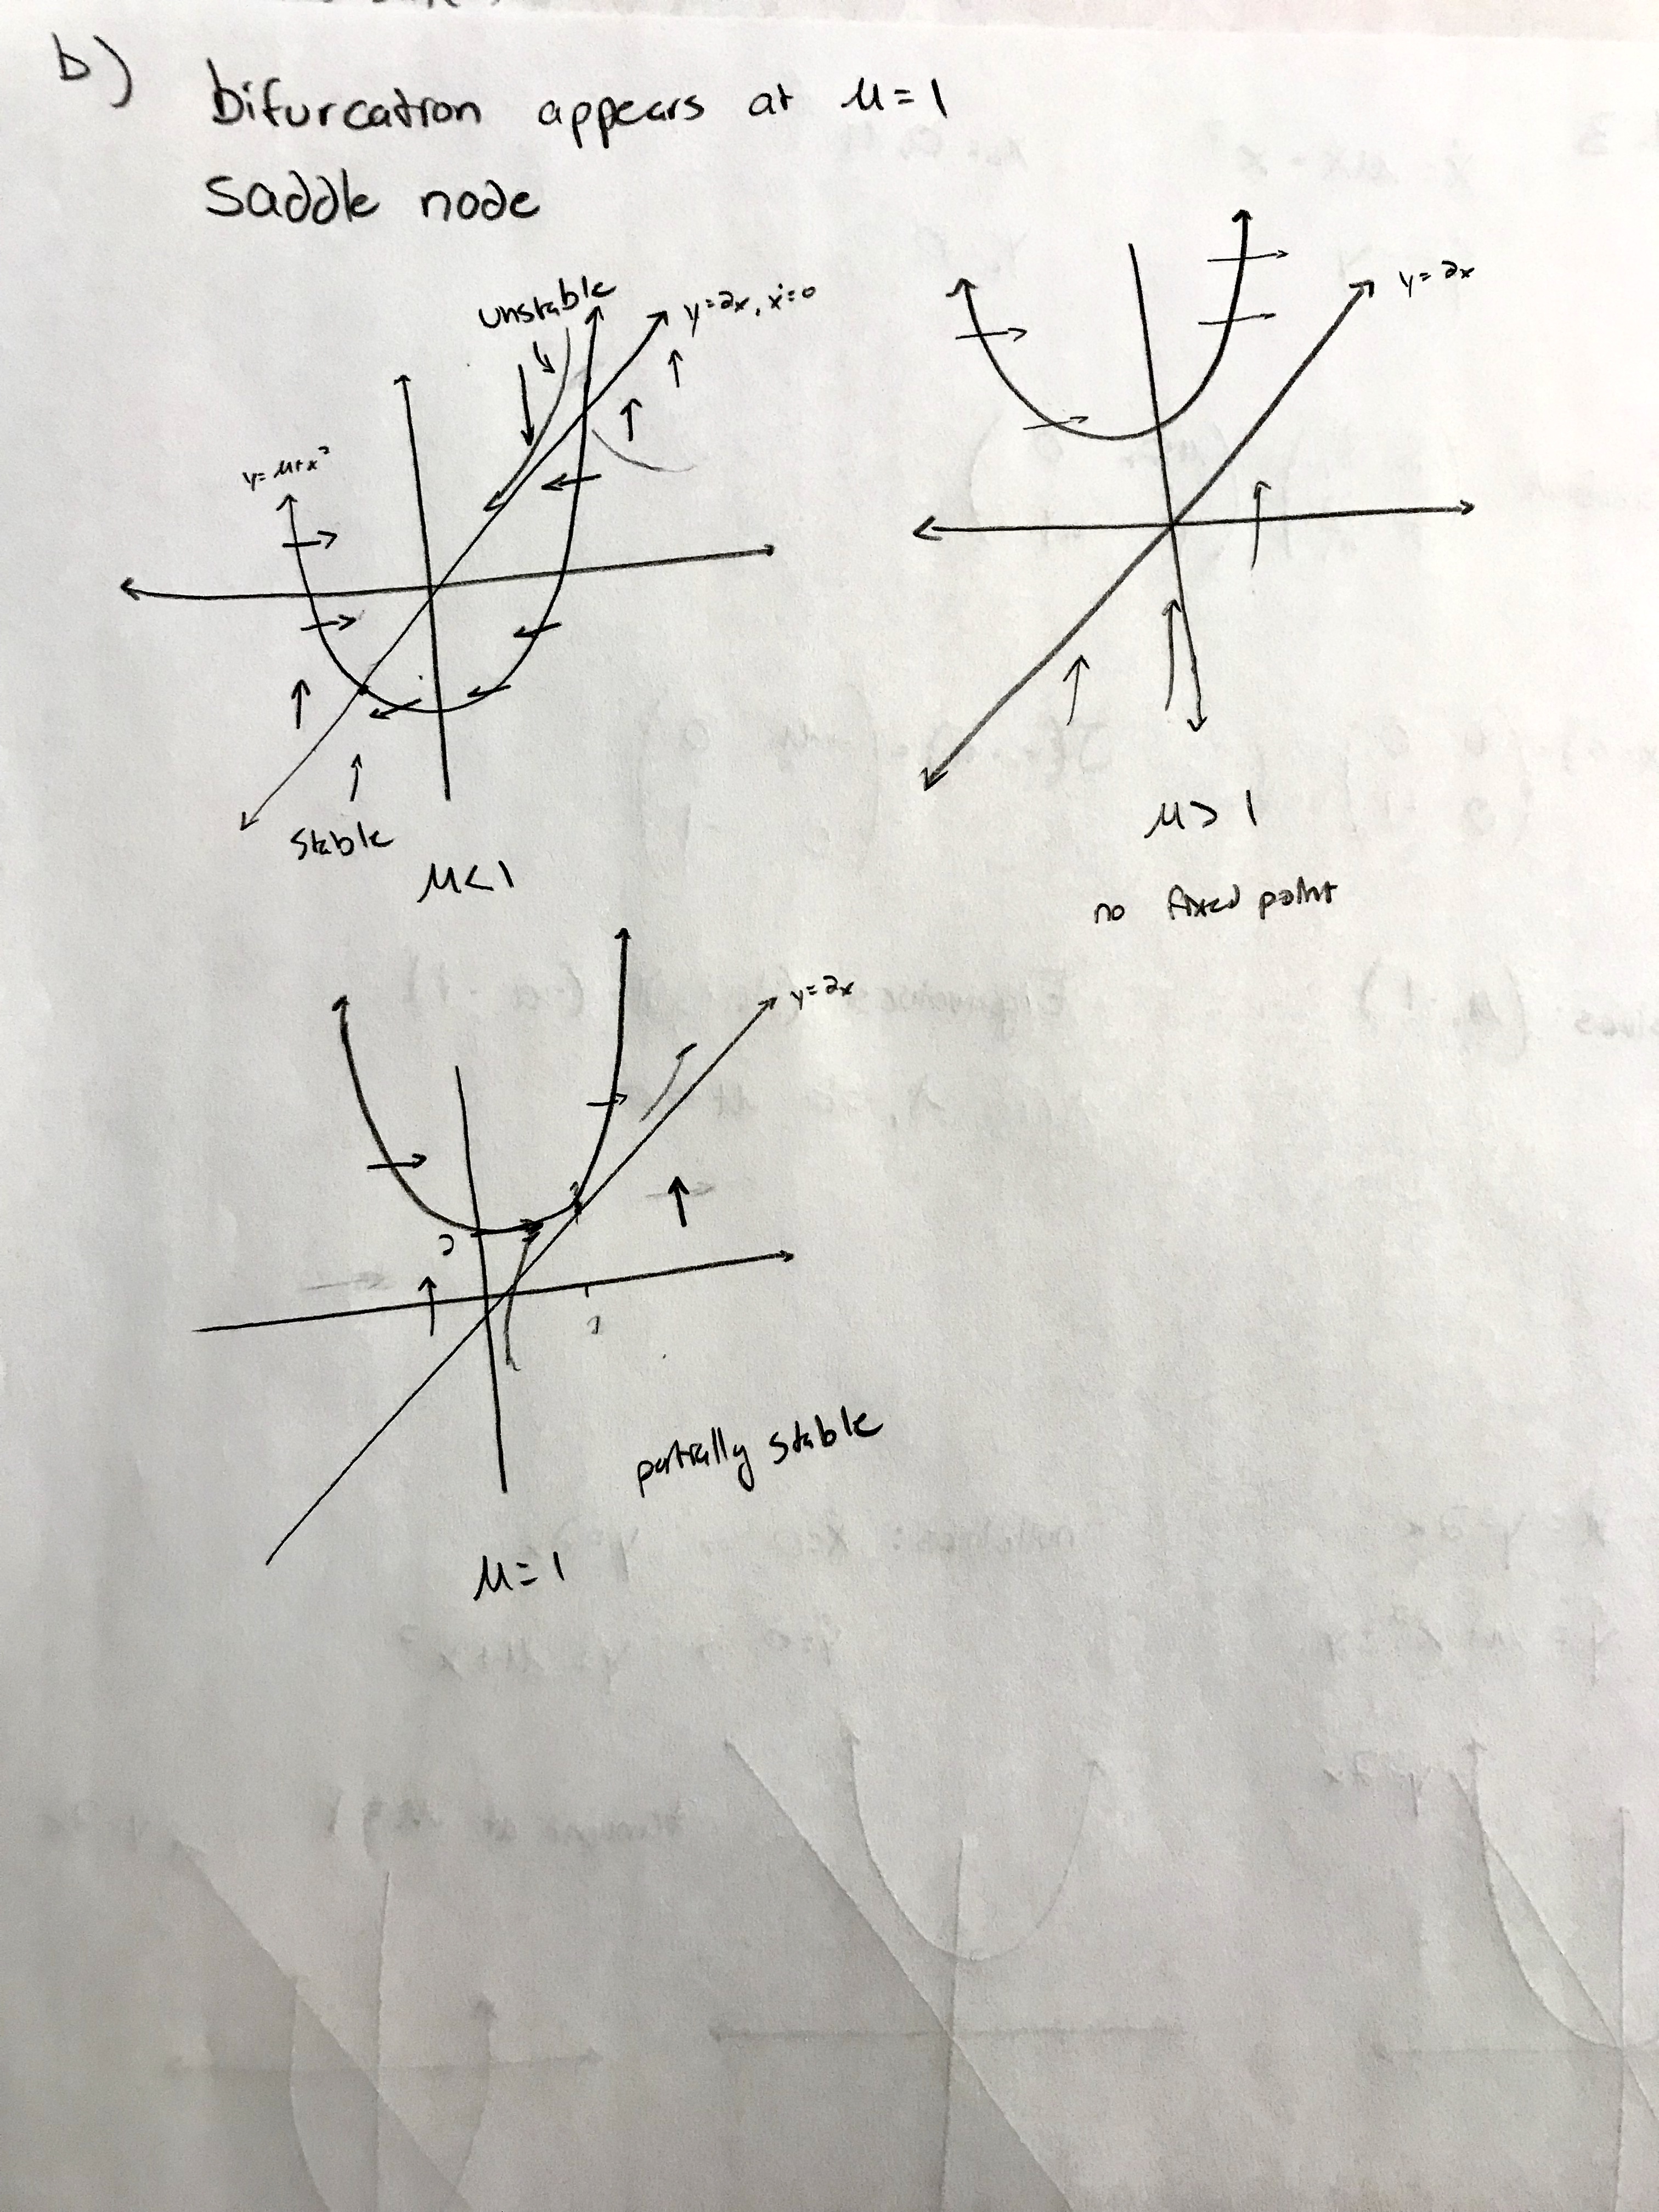 b)
bifurcation appears at μ=1
saddle node
unstable
y=2x, ẋ=0
y=μ+x²
stable
μ<1
y=2x
μ>1
no fixed point
y=2x
2
1
partially stable
μ=1